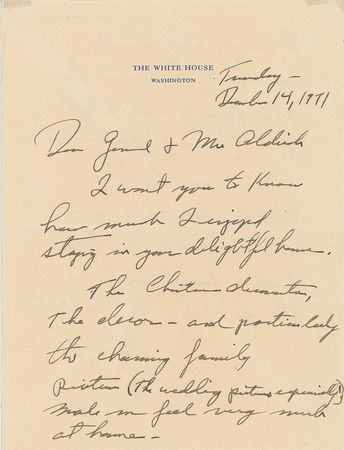 THE WHITE HOUSE
WASHINGTON
Tuesday –
December 14, 1971
Dear General & Mrs Aldrich
I want you to know
how much I enjoyed
staying in your delightful home.
The Christmas decorations,
the decor – and particularly
the charming family
pictures (the wedding pictures especially!)
made me feel very much
at home –